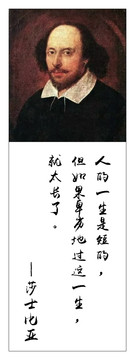 人的一生是短的，
但如果卑劣地过这一生，
就太长了。
—莎士比亚